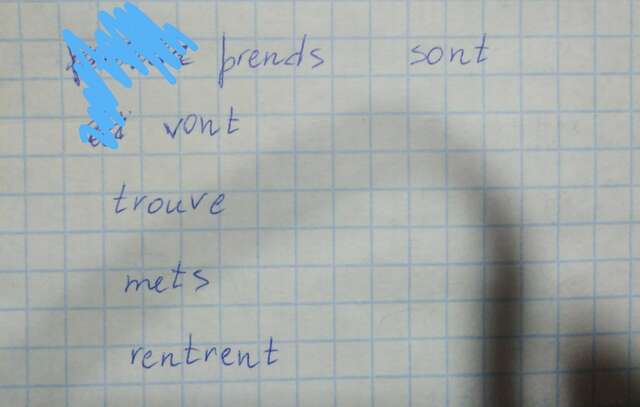 prends sont
vont
trouve
mets
rentrent